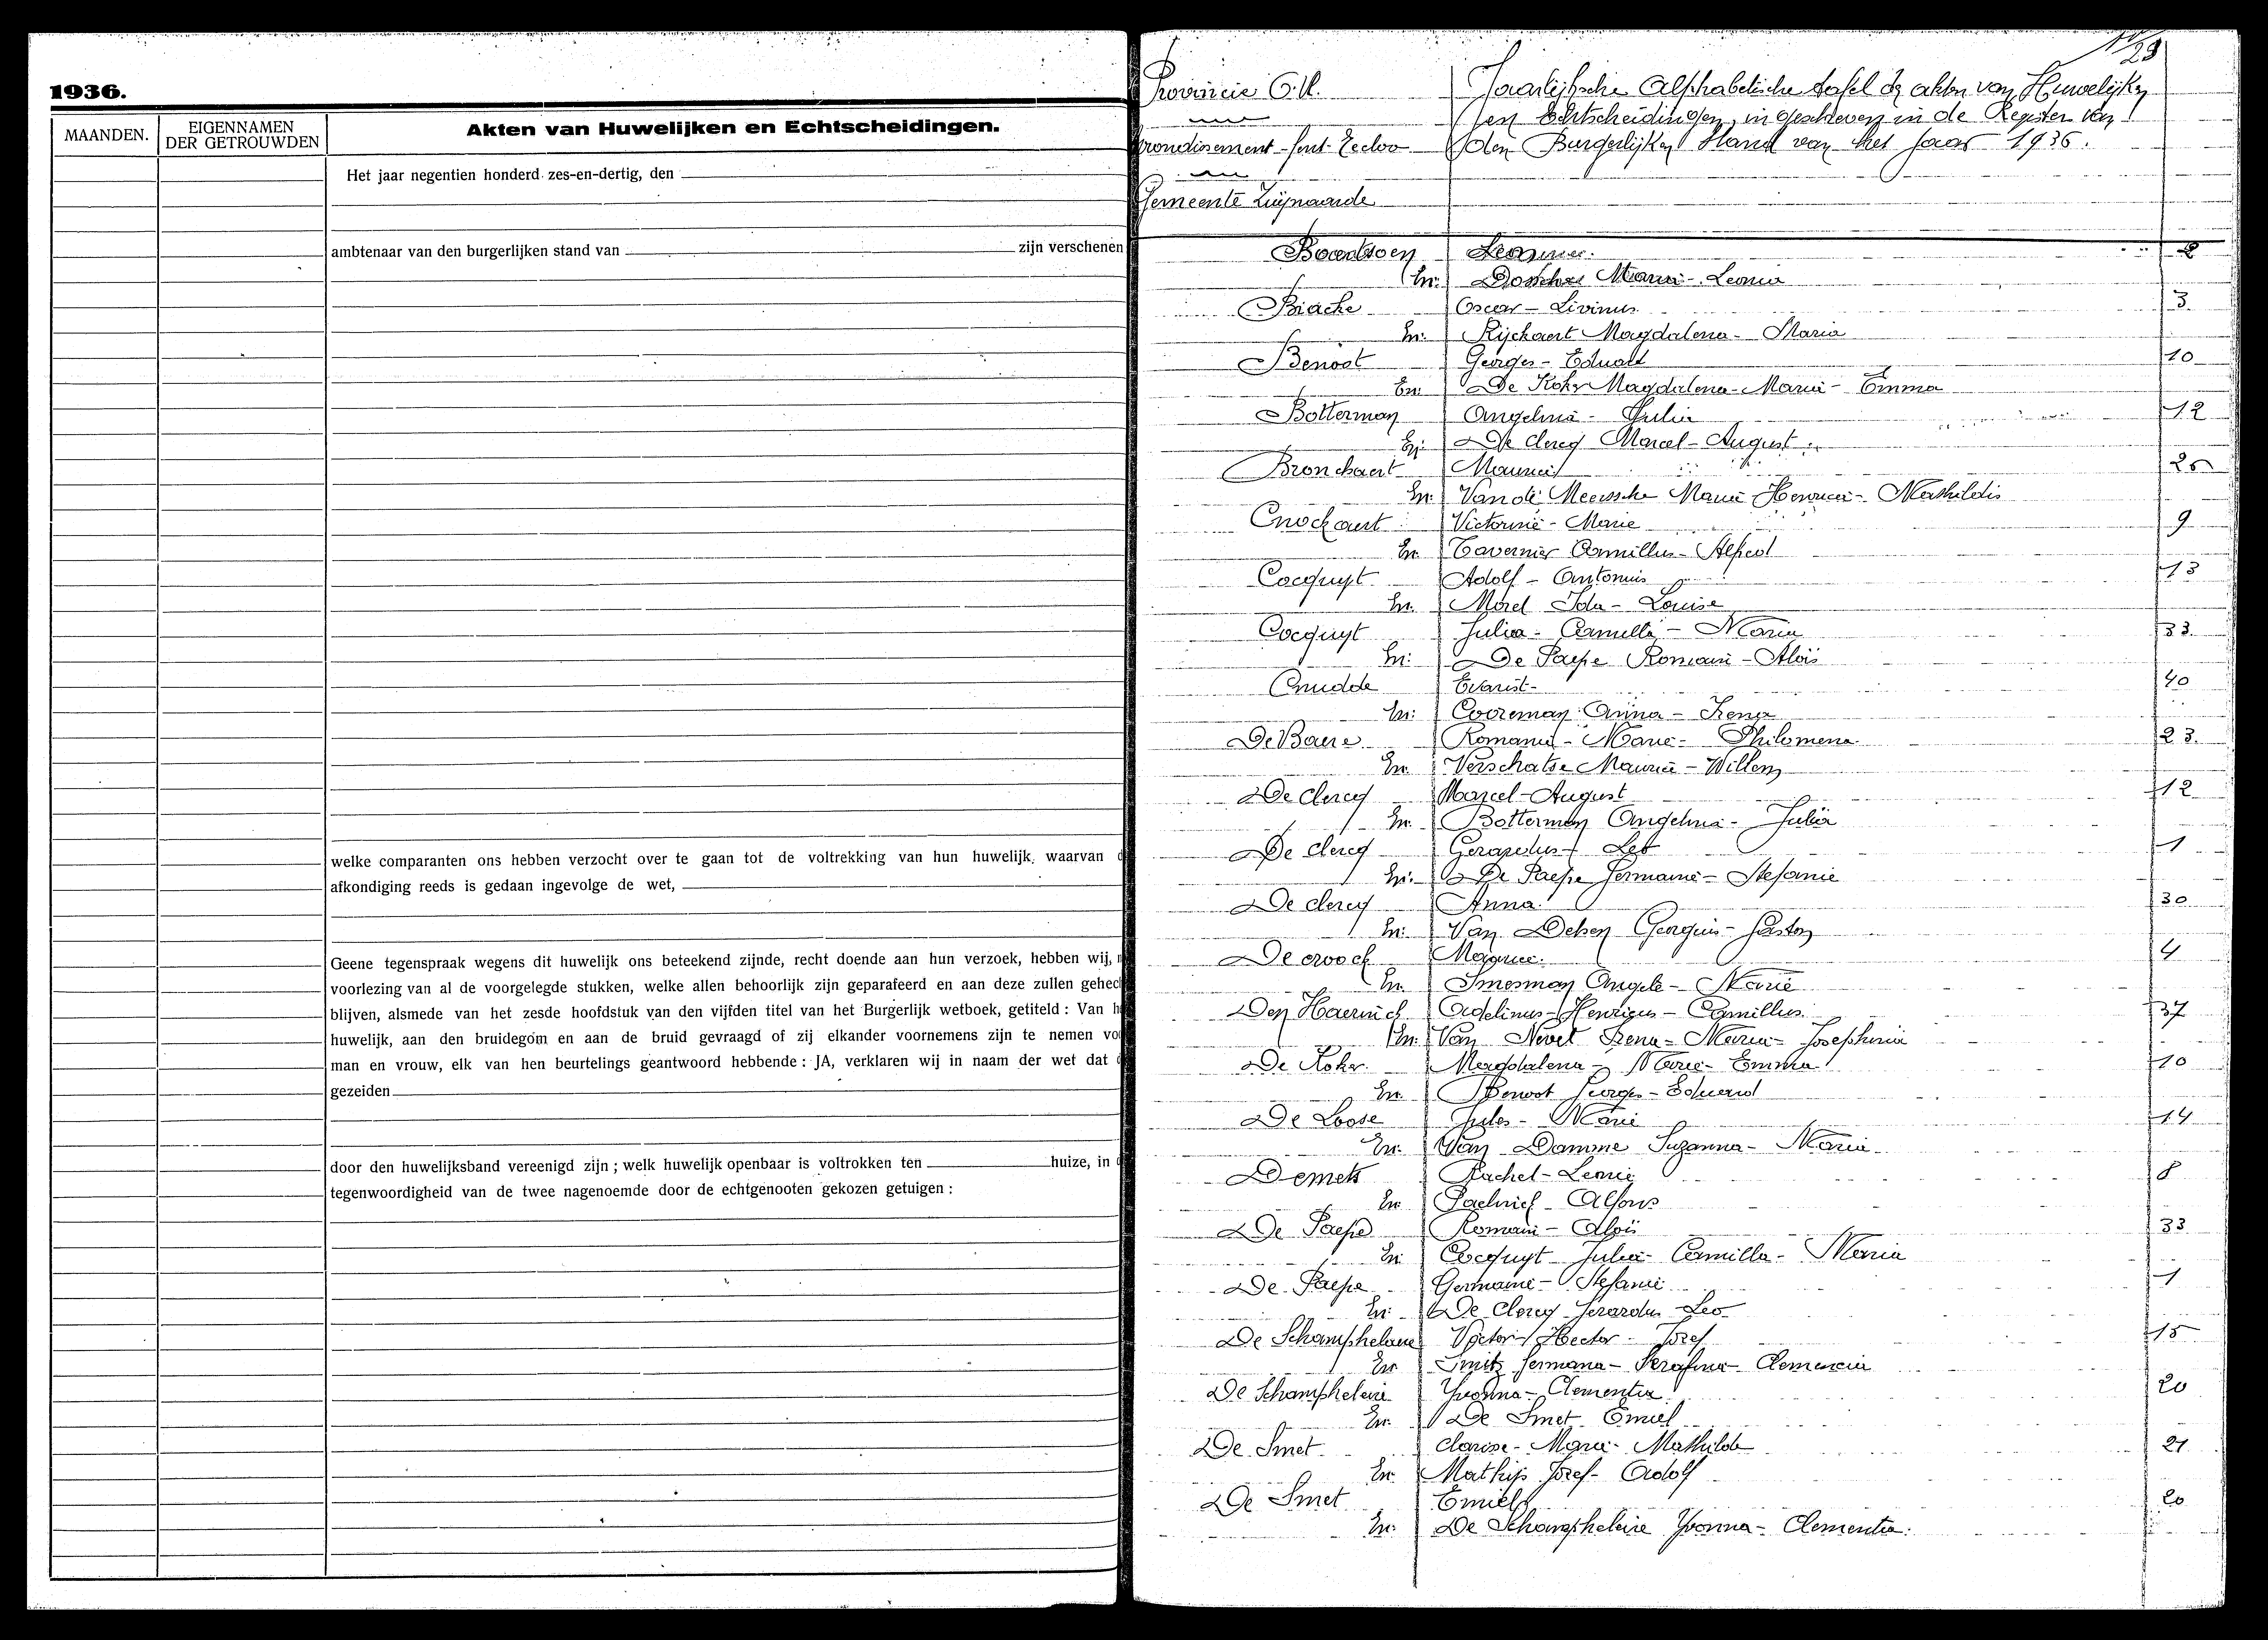 1936.
MAANDEN.
EIGENNAMEN
DER GETROUWDEN
Akten van Huwelijken en Echtscheidingen.
Het jaar negentien honderd zes-en-dertig, den
ambtenaar van den burgerlijken stand van zijn verschenen
welke comparanten ons hebben verzocht over te gaan tot de voltrekking van hun huwelijk, waarvan
afkondiging reeds is gedaan ingevolge de wet,
Geene tegenspraak wegens dit huwelijk ons beteekend zijnde, recht doende aan hun verzoek, hebben wij,
voorlezing van al de voorgelegde stukken, welke allen behoorlijk zijn geparafeerd en aan deze zullen gehec
blijven, alsmede van het zesde hoofdstuk van den vijfden titel van het Burgerlijk wetboek, getiteld : Van h
huwelijk, aan den bruidegom en aan de bruid gevraagd of zij elkander voornemens zijn te nemen vo
man en vrouw, elk van hen beurtelings geantwoord hebbende : JA, verklaren wij in naam der wet dat
gezeiden
door den huwelijksband vereenigd zijn ; welk huwelijk openbaar is voltrokken ten huize, in
tegenwoordigheid van de twee nagenoemde door de echtgenooten gekozen getuigen :
Provincie O.Vl.
Arrondisement Gent-Eecloo
Gemeente Zwijnaarde
Jaarlijksche Alphabetische tafel der akten van Huwelijken
en Echtscheidingen, in geschreven in de Register van
den Burgerlijken Stand van het jaar 1936.
En: Maria-Leonia
Oscar-Livinus 3
En: Rijckaert Magdalena-Maria
Benoot Georges-Eduard 10
En: De Koker Magdalena-Maria-Emma
Botterman Angelina-Julia 12
En: De clercq Marcel-August
Bronchaert Maurice
En: Van de Meerssche Maria Henrica-Mathildis
Cnockaert Victorine-Marie 9
En: Tavernier Camillus-Alfred
Cocquyt Adolf-Antonius 13
En: Morel Ida-Louise
Cocquyt Julia-Camilla-Maria 33
En: De Paepe Romain-Aloïs
Cnudde Evarist 40
En: Cooreman Anna-Irena
De Baere Romanie-Marie-Philomena 23
En: Maurice-Willem
De clercq Marcel-August 12
En: Botterman Angelina-Julia
De clercq Gerardus-Leo 1
En: De Paepe Germaine-Stefanie
De clercq Anna 30
En: Van Georges-Gaston
De croock Maurice 4
En: Angele-Marie
Den Haerinck Adelinus-Henricus-Camillus 37
En: Van Nevel Irena-Maria-Josephina
De Koker Magdalena-Marie-Emma 10
En: Benoot Georges-Eduard
De Loose Jules-Marie 14
En: Van Damme Suzanna-Maria
Demets Rachel-Leonie 8
En: Paelinck Alfons
De Paepe Romain-Aloïs 33
En: Cocquyt Julia-Camilla-Maria
De Paepe Germaine-Stefanie 1
En: De Clercq Gerardus-Leo
De Schamphelaere Victor Hector-Jozef 15
En: Smitz Germana-Serafina-Clemencia
De Schampheleire Yvonna-Clementia 20
En: De Smet Emiel
De Smet Clarisse-Maria-Mathilde 21
En: Mathijs Jozef-Adolf
De Smet Emiel 20
En: De Schampheleire Yvonna-Clementia.